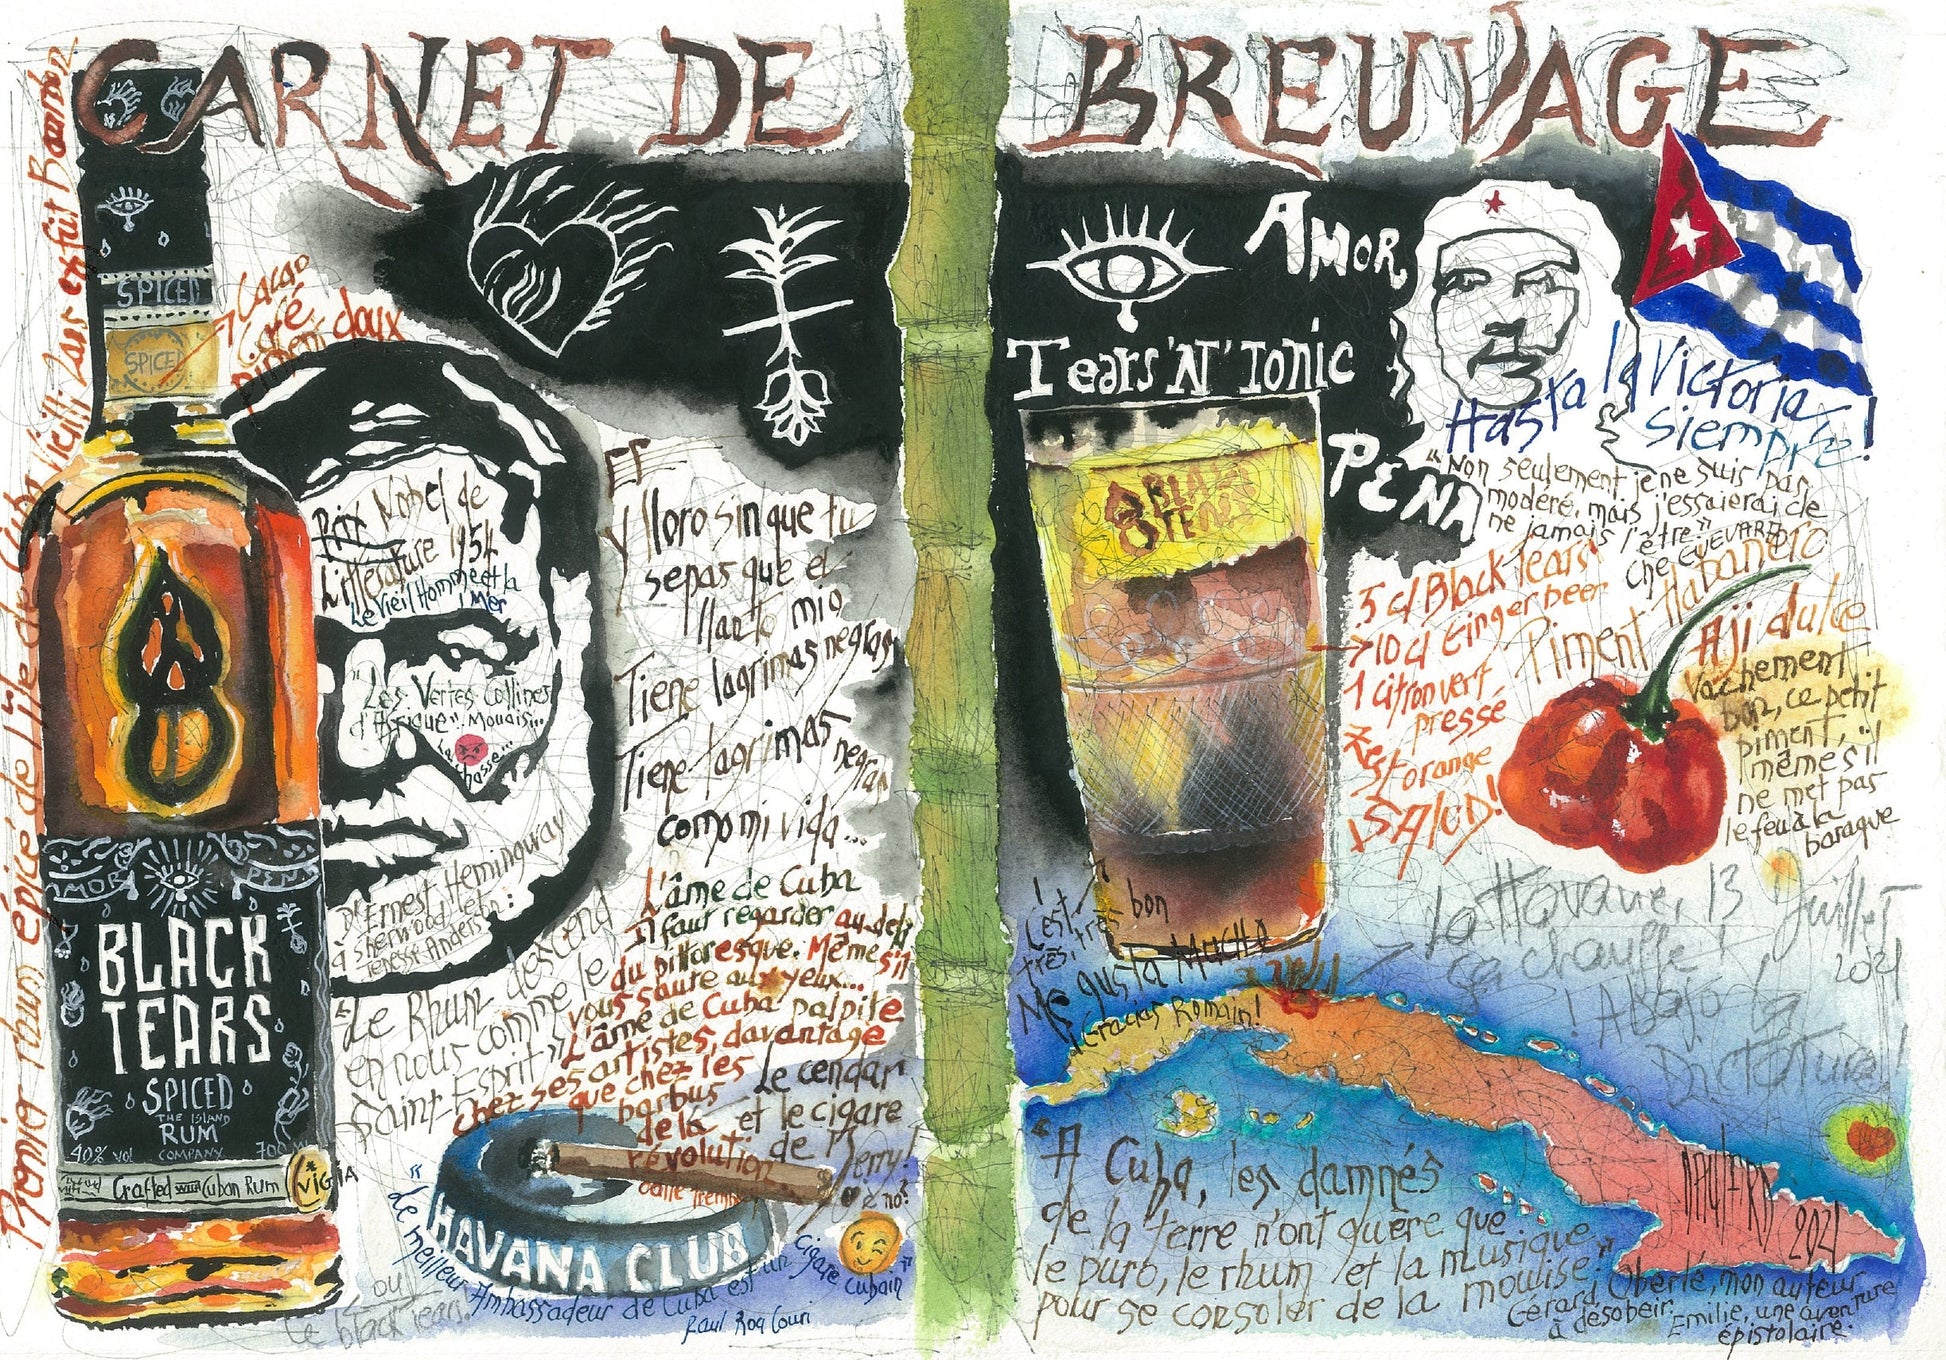 CARNET DE
BREUVAGE
Premier rhum épicé de l'île de Cuba vieilli 2 ans en fût Bourbon
SPICED
SPICED
Cacao
Café
Piment doux
Prix Nobel de
Littérature 1954
Le Vieil Homme et la
Mer
"Les Vertes Collines
d'Afrique". Mouais...
La
chasse...
D'Ernest Hemingway
à Sherwood
Anderson :
"Le Rhum descend
en nous comme le
Saint Esprit"
AMOR
PENA
BLACK
TEARS
SPICED
THE ISLAND
RUM
COMPANY
40% vol
700
Crafted with Cuban Rum
VIGIA
Y lloro sin que tu
sepas que el
llanto mio
Tiene lagrimas negras
Tiene lagrimas negras
como mi vida...
L'âme de Cuba
Il faut regarder au delà
du pittoresque. Même s'il
vous saute aux yeux...
L'âme de Cuba palpite
chez ses artistes, davantage
que chez les
barbus
de la
révolution.
Le cendar
et le cigare
de Merry!
HAVANA CLUB
"Le meilleur Ambassadeur de Cuba est un cigare cubain"
ou
le black tears.
AMOR
Tears 'N' Tonic
PENA
BLACK
TEARS
Hasta la Victoria
Siempre!
"Non seulement je ne suis pas
modéré, mais j'essaierai de
ne jamais l'être"
Che GUEVARA
5 cl Black Tears
10 cl Ginger beer
1 citron vert
pressé
Zest orange
SALUD!
Piment Habanero
Aji dulce
Vachement
bon, ce petit
piment,
même s'il
ne met pas
le feu à la
baraque
C'est très
très
bon
Me gusta MUCHO
Gracias Romain!
La Havane, 13 Juillet
2021
ça chauffe!
! Abajo la
Dictatura!
"A Cuba, les damnés
de la terre n'ont guère que
le puro, le rhum et la musique
pour se consoler de la mouise."
Gérard Oberlé, mon auteur
à désobéir.
Emilie, une aventure
épistolaire.
2021